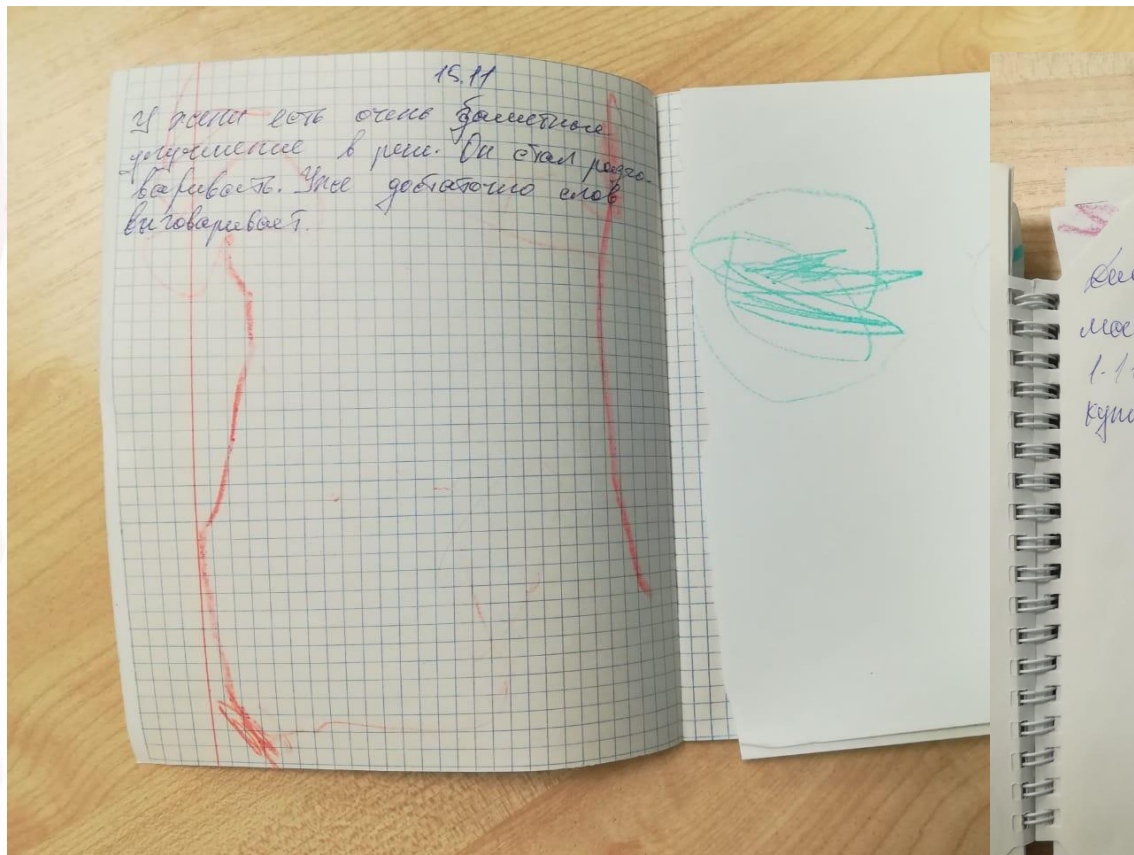 15.11
У Жени есть очень заметное
улучшение в речи. Он стал разго-
варивать. Уже достаточно слов
выговаривает.
1.1